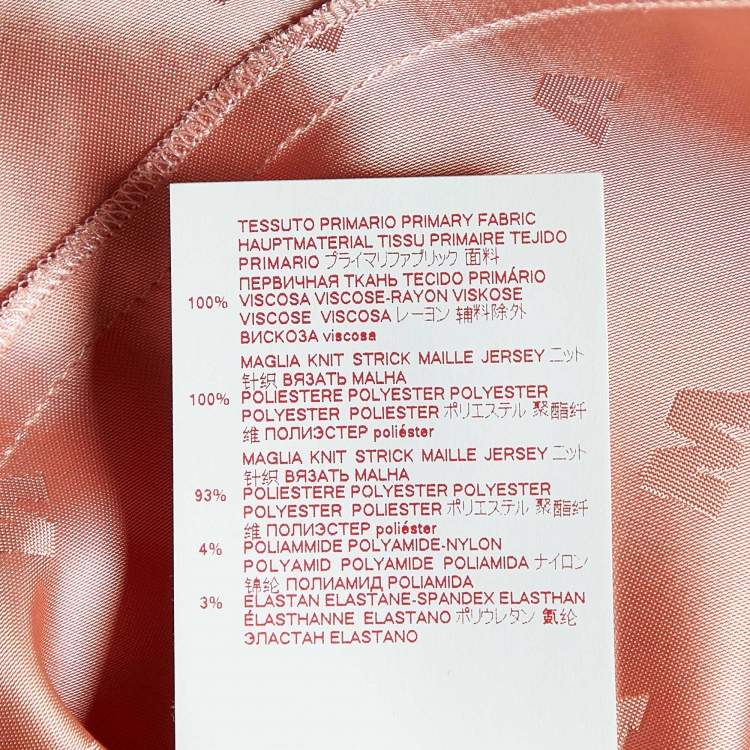 TESSUTO PRIMARIO PRIMARY FABRIC
HAUPTMATERIAL TISSU PRIMAIRE TEJIDO
PRIMARIO プライマリファブリック 面料
ПЕРВИЧНАЯ ТКАНЬ TECIDO PRIMÁRIO
100% VISCOSA VISCOSE-RAYON VISKOSE
VISCOSE VISCOSA レーヨン 辅料除外
ВИСКОЗА viscosa
MAGLIA KNIT STRICK MAILLE JERSEY ニット
针织 ВЯЗАТЬ MALHA
100% POLIESTERE POLYESTER POLYESTER
POLYESTER POLIESTER ポリエステル 聚酯纤
维 ПОЛИЭСТЕР poliéster
MAGLIA KNIT STRICK MAILLE JERSEY ニット
针织 ВЯЗАТЬ MALHA
93% POLIESTERE POLYESTER POLYESTER
POLYESTER POLIESTER ポリエステル 聚酯纤
维 ПОЛИЭСТЕР poliéster
4% POLIAMMIDE POLYAMIDE-NYLON
POLYAMID POLYAMIDE POLIAMIDA ナイロン
锦纶 ПОЛИАМИД POLIAMIDA
3% ELASTAN ELASTANE-SPANDEX ELASTHAN
ÉLASTHANNE ELASTANO ポリウレタン 氨纶
ЭЛАСТАН ELASTANO
A
M